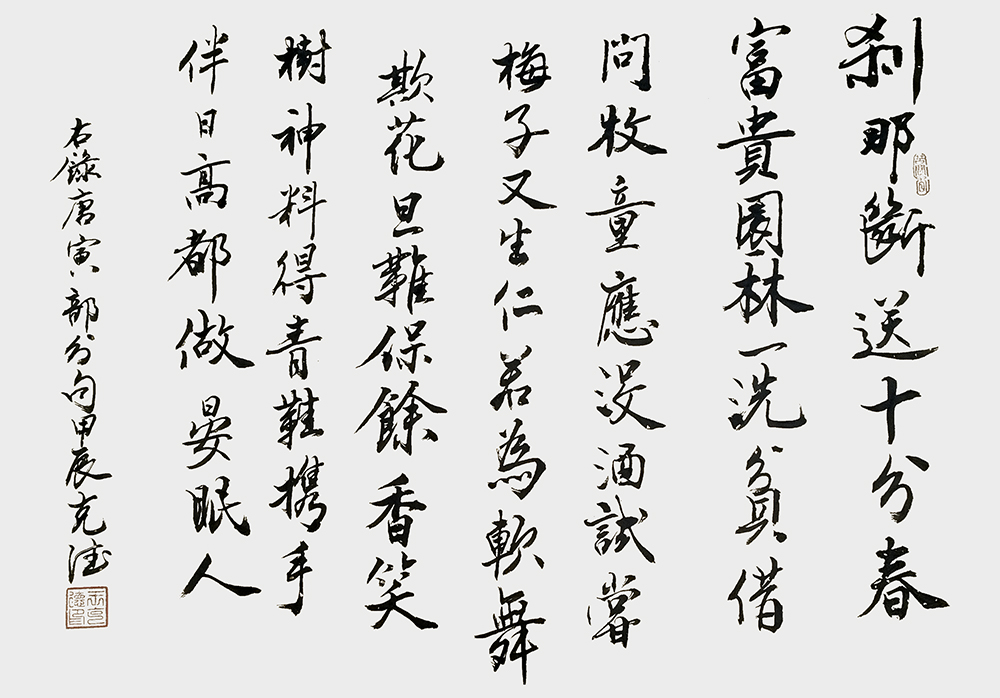 刹那斷送十分春
富貴園林一洗貧借
問牧童應沒酒試嘗
梅子又生仁若為軟舞
欺花旦難保餘香笑
樹神料得青鞋携手
伴日高都做晏眠人
右錄唐寅部分句甲辰克